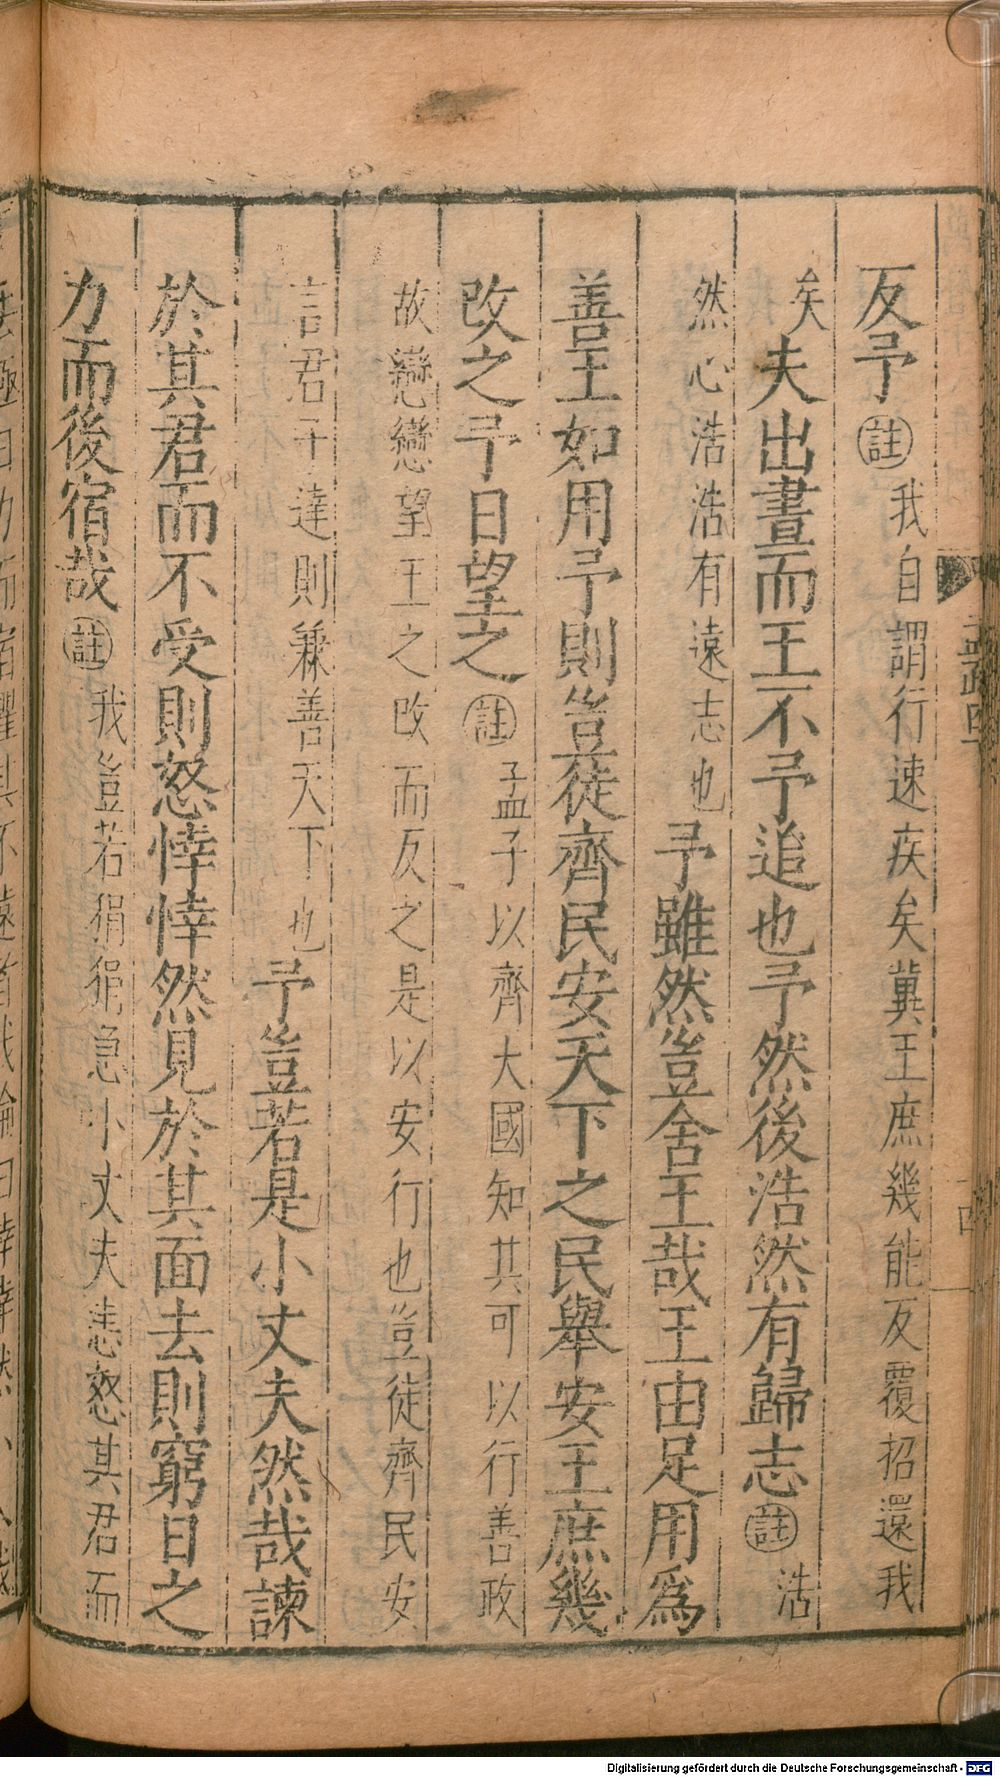 反予註我自謂行速疾矣冀王庶幾能反覆招還我
矣夫出晝而王不予追也予然後浩然有歸志註浩
然心浩浩有遠志也予雖然豈舍王哉王由足用爲
善王如用予則豈徒齊民安天下之民舉安王庶幾
改之予日望之註孟子以齊大國知其可以行善政
故戀戀望王之改而反之是以安行也豈徒齊民安
言君子達則兼善天下也予豈若是小丈夫然哉諫
於其君而不受則怒悻悻然見於其面去則窮日之
力而後宿哉註我豈若狷狷急小丈夫恚怒其君而
Digitalisierung gefördert durch die Deutsche Forschungsgemeinschaft - DFG